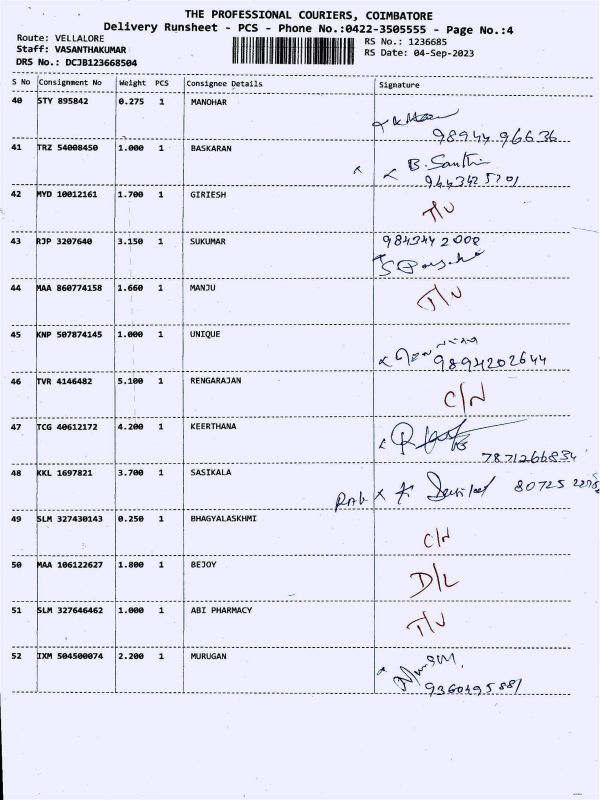 THE PROFESSIONAL COURIERS, COIMBATORE
Delivery Runsheet - PCS - Phone No.:0422-3505555 - Page No.:4
Route: VELLALORE
RS No.: 1236685
Staff: VASANTHAKUMAR
RS Date: 04-Sep-2023
DRS No.: DCJB123668504
S No Consignment No Weight PCS Consignee Details Signature
40 STY 895842 0.275 1 MANOHAR
98944 96636
41 TRZ 54008450 1.000 1 BASKARAN
B. Santhi
42 MYD 10012161 1.700 1 GIRIESH
43 RJP 3207640 3.150 1 SUKUMAR
9843442008
44 MAA 860774158 1.660 1 MANJU
45 KNP 507874145 1.000 1 UNIQUE
9894202644
46 TVR 4146482 5.100 1 RENGARAJAN
C/N
47 TCG 40612172 4.200 1 KEERTHANA
7871266834
48 KKL 1697821 3.700 1 SASIKALA
49 SLM 327430143 0.250 1 BHAGYALASKHMI
C/N
50 MAA 106122627 1.800 1 BEJOY
D/L
51 SLM 327646462 1.000 1 ABI PHARMACY
52 IXM 504500074 2.200 1 MURUGAN